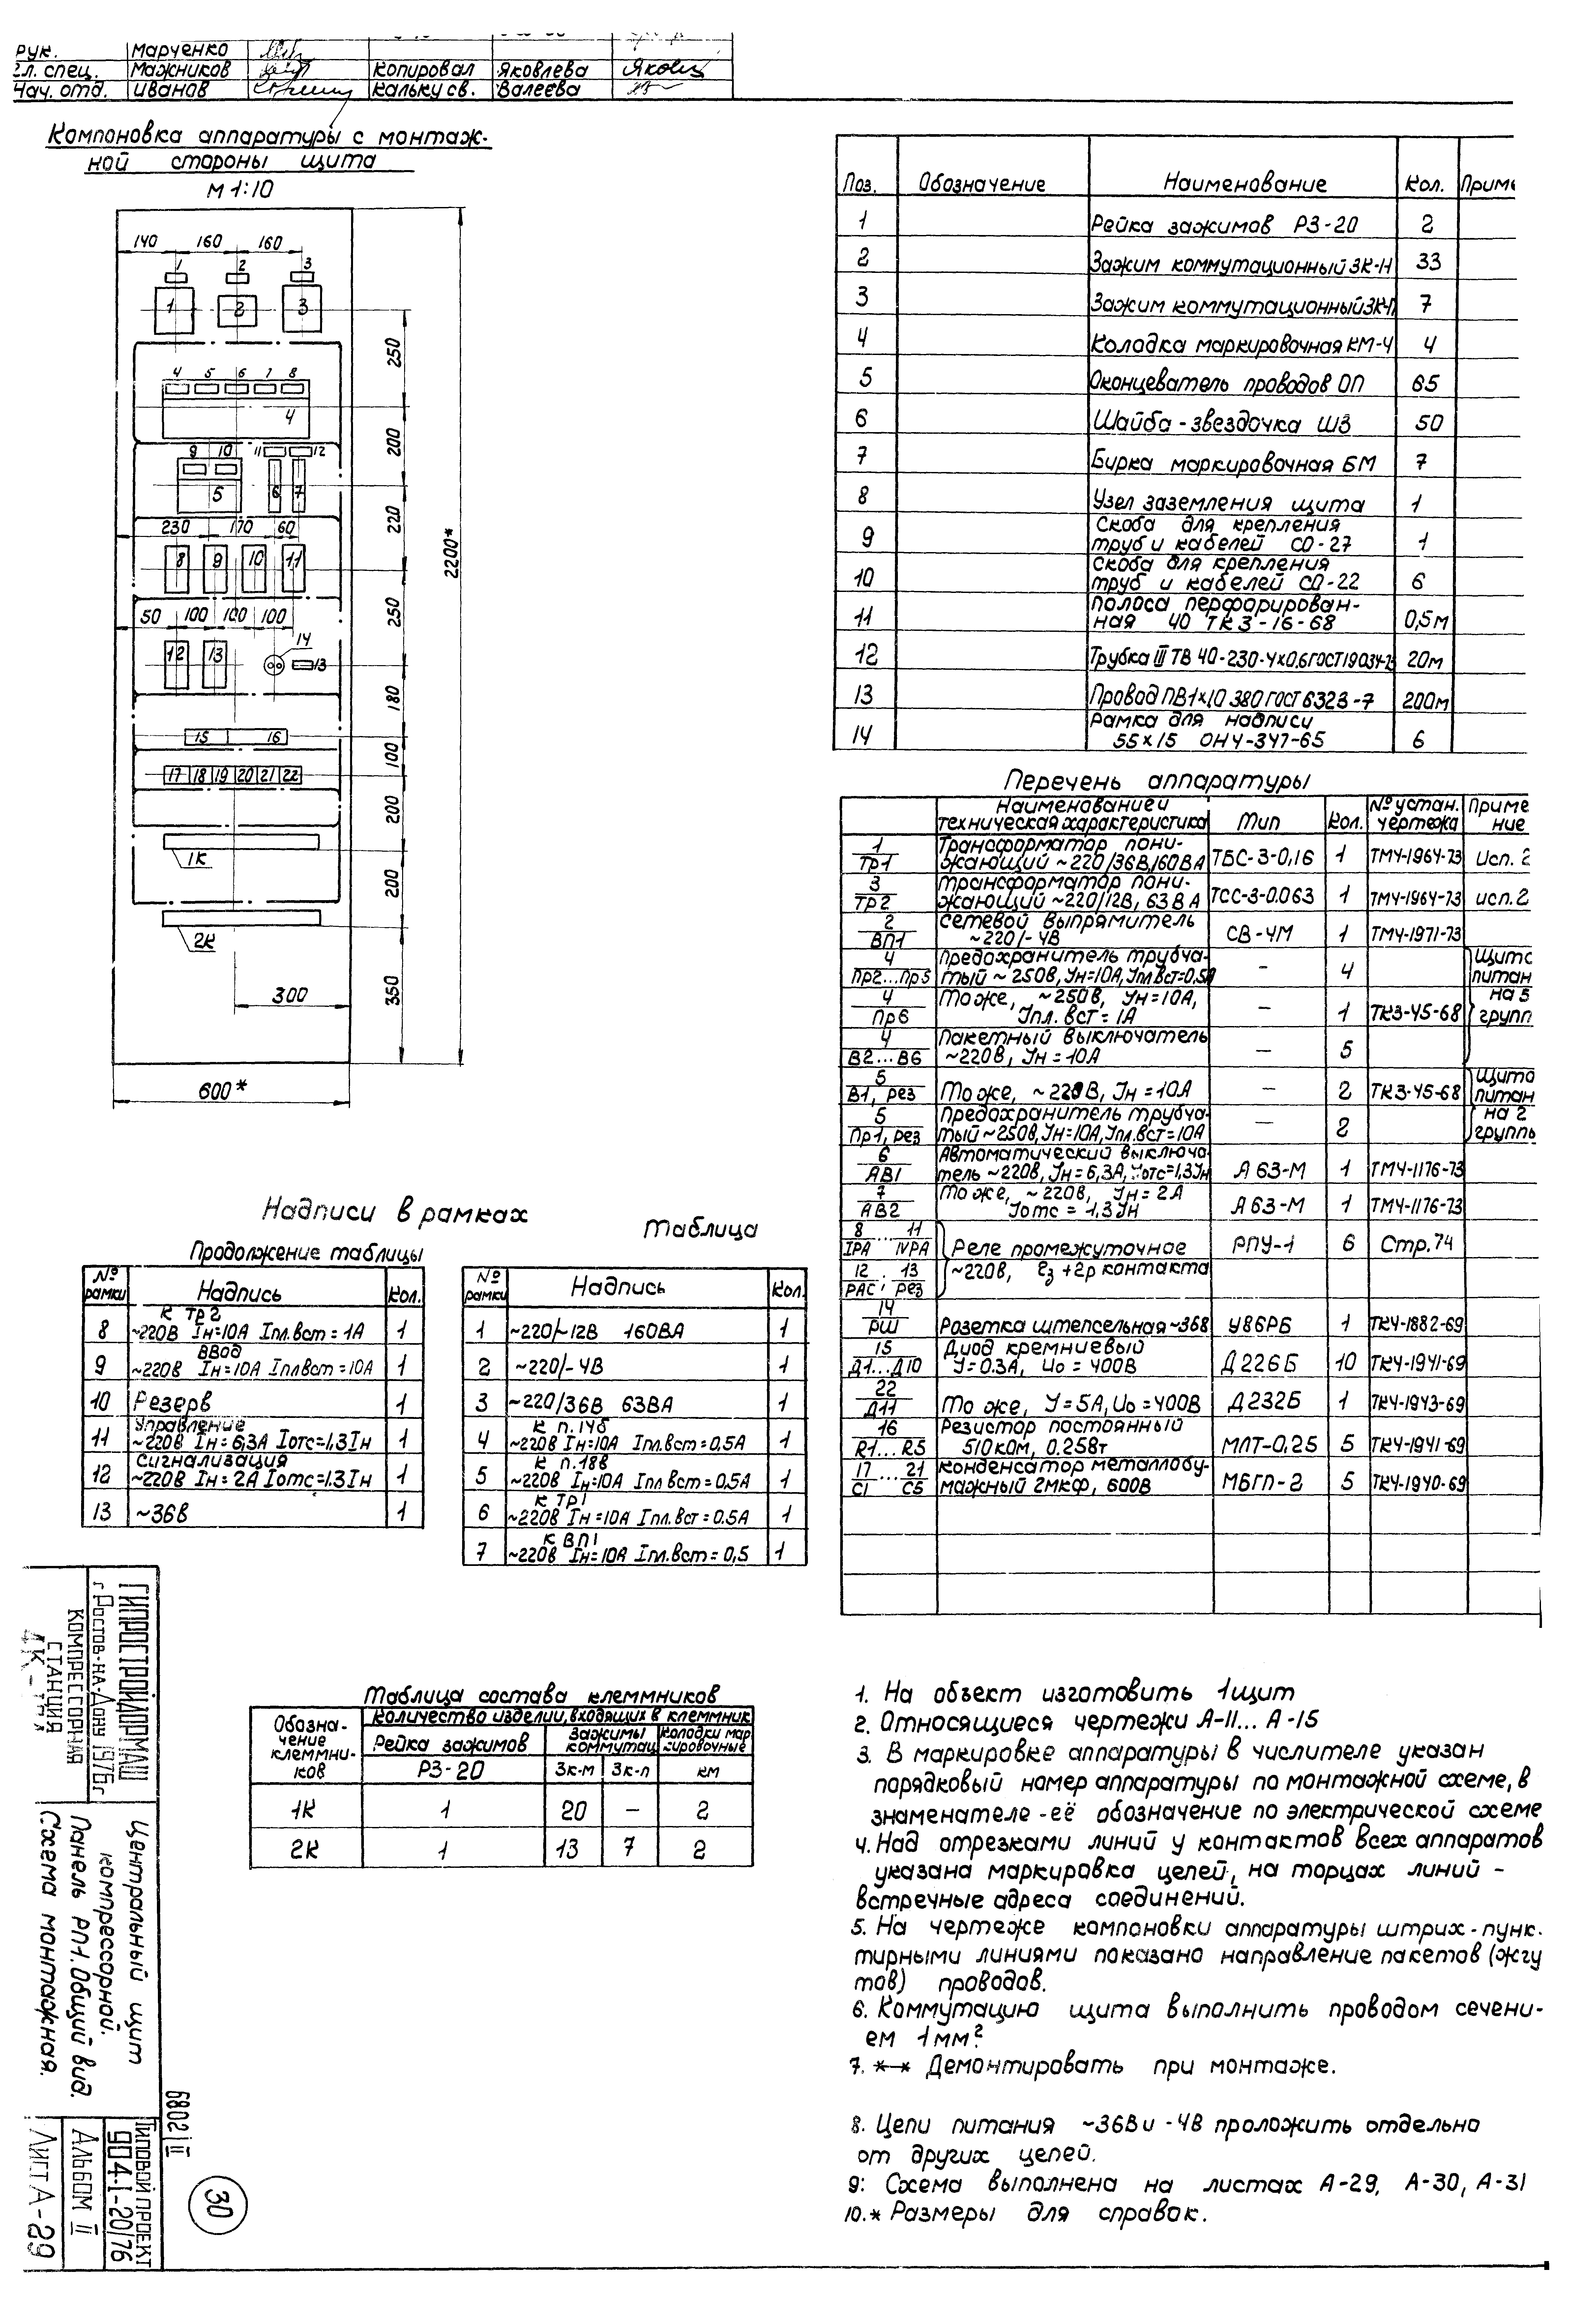 Рук. Марченко
Гл. спец. Мажников Копировал Яковлева
Нач. отд. Иванов Кальку св. Валеева
Компоновка аппаратуры с монтаж-
ной стороны щита
М 1:10
140 160 160
1 2 3
1 2 3
250
4 5 6 7 8
4
200
9 10 11 12
5 6 7
220
230 170 60
8 9 10 11
2200*
250
50 100 100 100
14
12 13 13
180
15 16
100
17 18 19 20 21 22
200
1К
200
2К
350
300
600*
Поз. Обозначение Наименование Кол. Приме
1 Рейка зажимов РЗ-20 2
2 Зажим коммутационный ЗК-Н 33
3 Зажим коммутационный ЗК-П 7
4 Колодка маркировочная КМ-4 4
5 Оконцеватель проводов ОП 65
6 Шайба-звездочка ШЗ 50
7 Бирка маркировочная БМ 7
8 Узел заземления щита 1
9 Скоба для крепления
труб и кабелей СО-27 1
10 Скоба для крепления
труб и кабелей СО-22 6
11 Полоса перфорирован-
ная 40 ТК3-16-68 0,5м
12 Трубка III ТВ 40-230-4х0,6 ГОСТ 19034-73 20м
13 Провод ПВ1х1,0 380 ГОСТ 6323-7 200м
14 Рамка для надписи
55х15 ОН4-347-65 6
Перечень аппаратуры
Наименование и техническая характеристика Тип Кол. № устан. чертежа Приме ние
1/ТР1 Трансформатор пони-
жающий ~220/36В, 160ВА ТБС-3-0,16 1 ТМ4-1964-73 Исп. 2
3/ТР2 Трансформатор пони-
жающий ~220/12В, 63ВА ТСС-3-0.063 1 ТМ4-1964-73 исп. 2
2/ВП1 Сетевой выпрямитель
~220/-4В СВ-4М 1 ТМ4-1971-73
4/Пр2...Пр5 Предохранитель трубча-
тый ~250В, Iн=10А, Iпл.вст=0,5А — 4 Щито питан
4/Пр6 То же, ~250В, Iн=10А,
Iпл. вст = 1А — 1 ТК3-45-68 на 5 групп
4/В2...В6 Пакетный выключатель
~220В, Iн = 10А — 5
5/В1, рез То же, ~220В, Iн = 10А — 2 ТК3-45-68 Щито питан
5/Пр1, рез Предохранитель трубча-
тый ~250В, Iн=10А, Iпл.вст=10А — 2 на 2 группы
6/АВ1 Автоматический выключа-
тель ~220В, Iн=6,3А, Iотс=1,3Iн А 63-М 1 ТМ4-1176-73
7/АВ2 То же, ~220В, Iн = 2А
Iотс = 1,3 Iн А 63-М 1 ТМ4-1176-73
8...11/IРА IVРА Реле промежуточное РПУ-1 6 Стр. 74
12, 13/РАС, рез ~220В, 2з+2р контакта
14/РШ Розетка штепсельная ~36В У86РБ 1 ТК4-1882-69
15/Д1...Д10 Диод кремниевый
I=0.3А, Uо = 400В Д226Б 10 ТК4-1941-69
22/Д11 То же, I=5А, Uо=400В Д232Б 1 ТК4-1943-69
16/R1...R5 Резистор постоянный
510ком, 0.25Вт МЛТ-0,25 5 ТК4-1941-69
17...21/С1 С5 Конденсатор металлобу-
мажный 2мкф, 600В МБГП-2 5 ТК4-1940-69
Надписи в рамках
Таблица
Продолжение таблицы
№ рамки Надпись Кол.
8 К ТР2
~220В Iн=10А Iпл.вст = 1А 1
9 Ввод
~220В Iн=10А Iпл.вст = 10А 1
10 Резерв 1
11 Управление
~220В Iн = 6,3А Iотс=1,3Iн 1
12 Сигнализация
~220В Iн = 2А Iотс=1.3Iн 1
13 ~36В 1
№ рамки Надпись Кол.
1 ~220/~12В 160ВА 1
2 ~220/-4В 1
3 ~220/36В 63ВА 1
4 К п.14б
~220В Iн=10А Iпл.вст = 0,5А 1
5 К п.18в
~220В Iн=10А Iпл.вст = 0,5А 1
6 К ТР1
~220В Iн=10А Iпл.вст = 0.5А 1
7 К ВП1
~220В Iн=10А Iпл.вст = 0,5 1
Таблица состава клеммников
Обозна-
чение
клеммни-
ков
Количество изделий, входящих в клеммник
Рейка зажимов Зажимы коммутац Колодки мар кировочные
РЗ-20 ЗК-м ЗК-п км
1К 1 20 — 2
2К 1 13 7 2
1. На объект изготовить 1 щит
2. Относящиеся чертежи А-11... А-15
3. В маркировке аппаратуры в числителе указан
порядковый номер аппаратуры по монтажной схеме, в
знаменателе - её обозначение по электрической схеме
4. Над отрезками линий у контактов всех аппаратов
указана маркировка цепей, на торцах линий -
встречные адреса соединений.
5. На чертеже компоновки аппаратуры штрих-пунк-
тирными линиями показано направление пакетов (жгу
тов) проводов.
6. Коммутацию щита выполнить проводом сечени-
ем 1мм²
7. *—* Демонтировать при монтаже.
8. Цепи питания ~36В и -4В проложить отдельно
от других цепей.
9: Схема выполнена на листах А-29, А-30, А-31
10. * Размеры для справок.
ГИПРОСТРОЙДОРМАШ
г. Ростов-на-Дону 1976г
КОМПРЕССОРНАЯ
СТАНЦИЯ
Центральный щит
компрессорной.
Панель РП1. Общий вид.
Схема монтажная.
Типовой проект
904-1-20/76
Альбом II
Лист А-29
6802/II
30